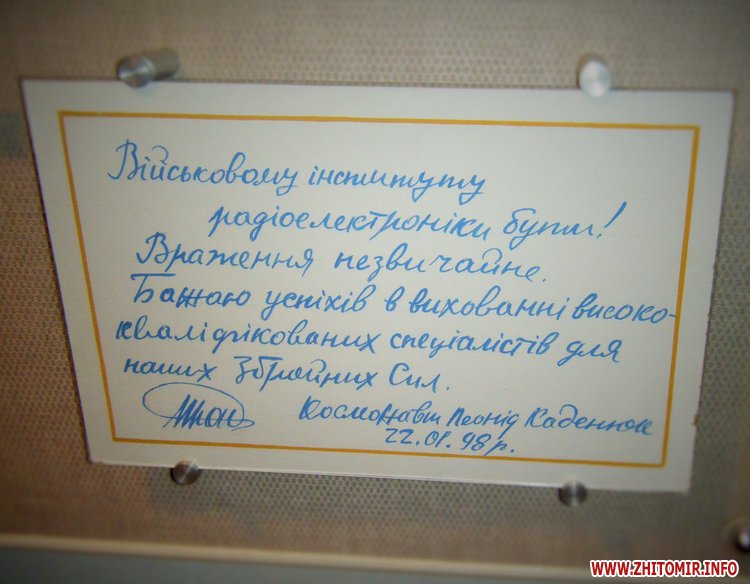 Військовому інституту
радіоелектроніки бути!
Враження незвичайне.
Бажаю успіхів в вихованні високо-
кваліфікованих спеціалістів для
наших Збройних Сил.
Космонавт Леонід Каденюк
22.01.98 р.
WWW.ZHITOMIR.INFO